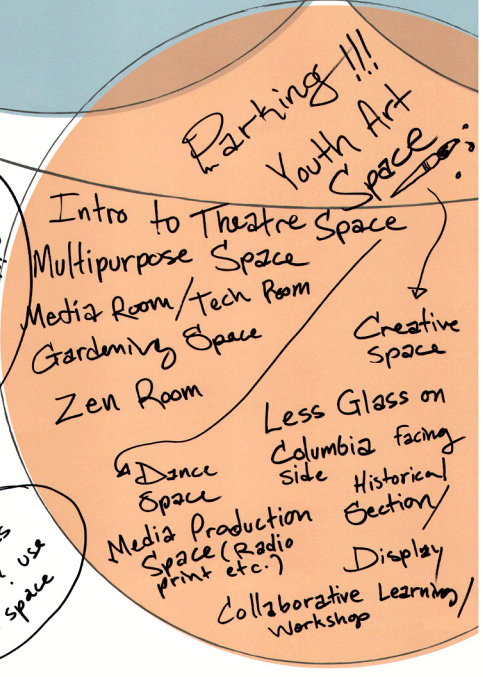 Parking!!!
Youth Art
Space
Intro to Theatre Space
Multipurpose Space
Media Room/Tech Room
Gardening Space
Zen Room
Creative
space
Less Glass on
Columbia facing
side
Historical
Section/
Display
Dance
Space
Media Production
Space (Radio
print etc.)
Collaborative Learning/
Workshop
use
space